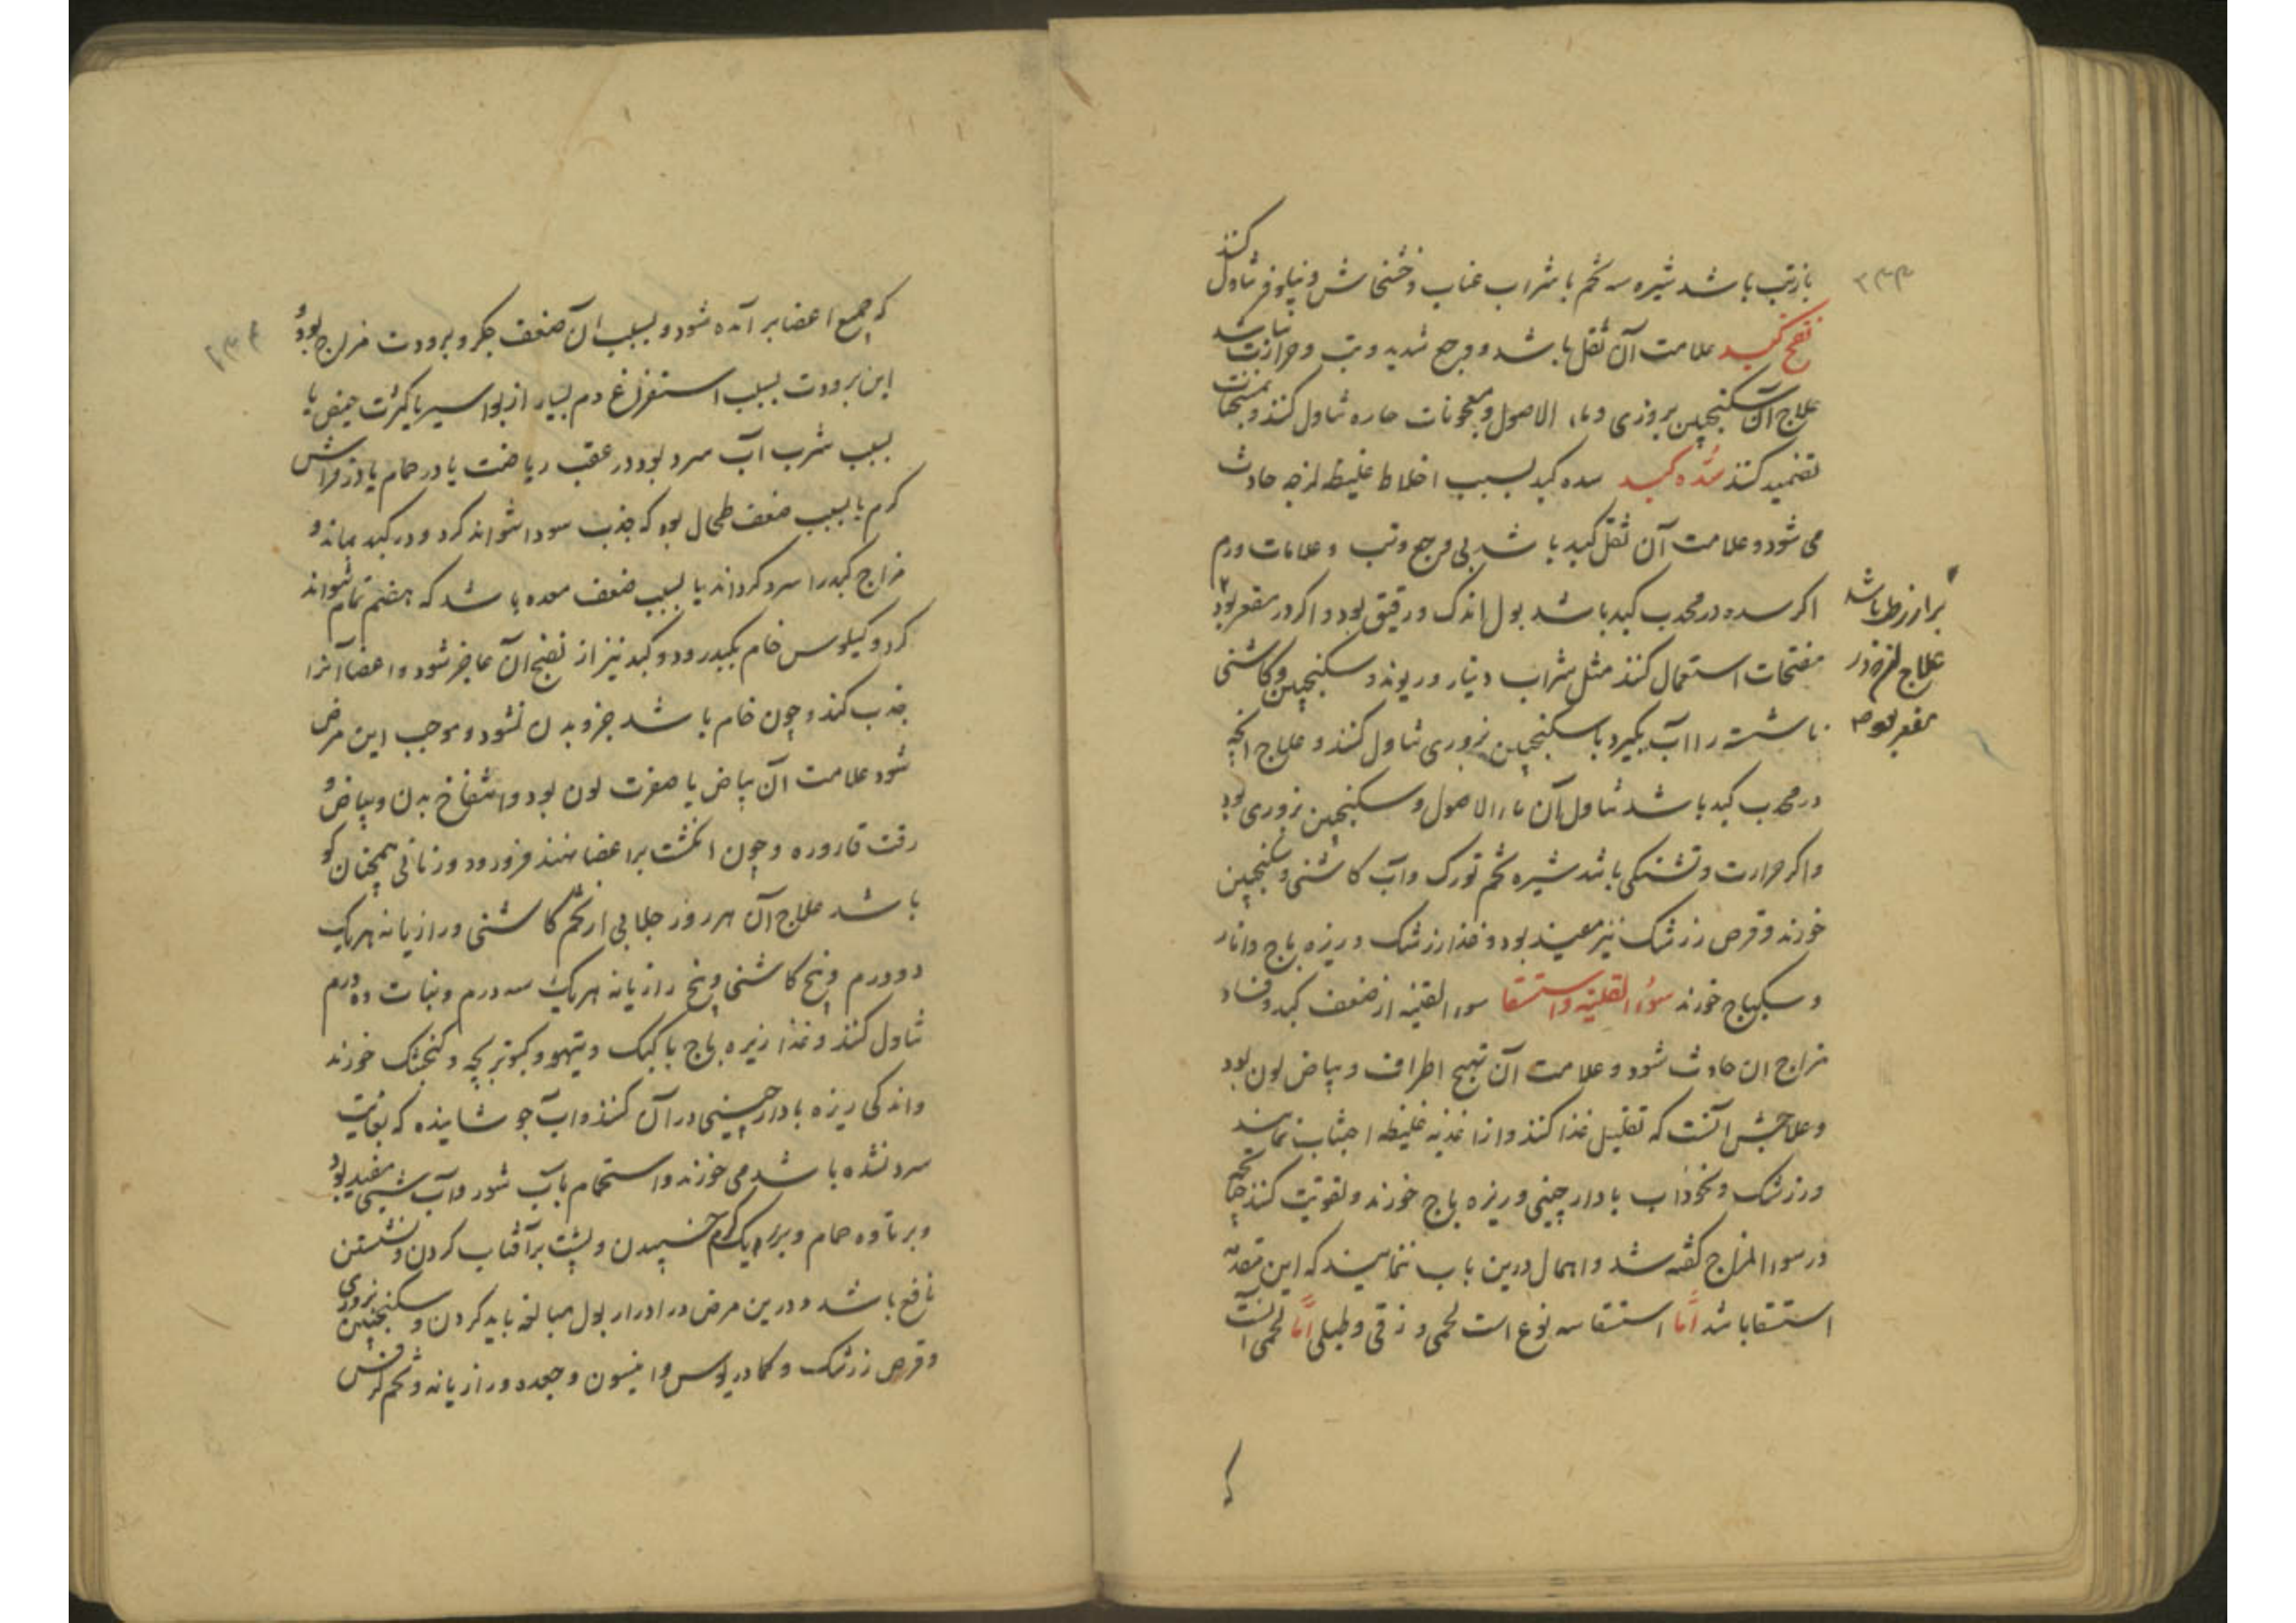 ۲۳۳
کنند
بازتب باشد شیره سه تخم با شراب عناب و خشخاش و نیلوفر تناول
نفخ کبد علامت آن ثقل باشد و وجع شدید و تب و حرارت نباشد
علاج آن سکنجبین بزوری و ماء الاصول و معجونات حاره تناول کنند و بمسخنات
تضمید کنند سُدّه کبد سده کبد بسبب اخلاط غلیظ لزجه حادث
می شود و علامت آن ثقل کبد باشد بی وجع و تب و علامات ورم
اکر سده در محدب کبد باشد بول اندک و رقیق بود و اکر در مقعر بود
براز رطب باشد
علاج انچه در
مقعر بود
مفتحات استعمال کنند مثل شراب دینار و ریوند و سکنجبین و کاشنی
ناشسته را آب بکیرد با سکنجبین بزوری تناول کنند و علاج انچه
در محدب کبد باشد تناول آن ماء الاصول و سکنجبین بزوری بود
و اکر حرارت و تشنکی باشد شیره تخم تورک و آب کاشنی و سکنجبین
خورند و قرص زرشک نیز مفید بود و غذا زرشک و زیره باج و انار
و سکباج خورند سوء القنیه و استسقا سوء القنیه از ضعف کبد و فساد
مزاج ان حادث شود و علامت آن تهبج اطراف و بیاض لون بود
و علاجش آنست که تقلیل غذا کنند و از اغذیه غلیظه اجتناب نمایند
و زرشک و نخوداب با دارچینی و زیره باج خورند و تقویت کنند چنانچه
در سوء المزاج کفته شد و اهمال درین باب ننمایند که این مقدمه
استسقا باشد امّا استسقا سه نوع است لحمی و زقی و طبلی امّا لحمی آنست
که
۲۳۴
که جمیع اعضا بر آمده شود و بسبب آن ضعف جکر و برودت مزاج بود و
این برودت بسبب استفراغ دم بسیار از بواسیر یا کثرت حیض یا
بسبب شرب آب سرد بود در عقب ریاضت یا در حمام یا در فراش
کرم یا بسبب ضعف طحال بود که جذب سودا نتواند کرد و در کبد بماند و
مزاج کبد را سرد کرداند یا بسبب ضعف معده باشد که هضم تمام نتواند
کرد و کیلوس خام بکبد رود و کبد نیز از نضج آن عاجز شود و اعضا آنرا
جذب کند و چون خام باشد جزو بدن نشود و موجب این مرض
شود علامت آن بیاض یا صفرت لون بود و انتفاخ بدن و بیاض و
رقت قاروره و چون انکشت بر اعضا نهند فرو رود و زمانی همچنان کو
باشد علاج آن هر روز جلابی از تخم کاشنی و رازیانه هر یک
دو درم و بیخ کاشنی و بیخ رازیانه هر یک سه درم و نبات ده درم
تناول کنند و غذا زیره باج با کبک و تیهو و کبوتر بچه و کنجشک خورند
و اندکی زیره با دارچینی در آن کنند و آب جوشانیده که بغایت
سرد نشده باشد می خورند و استحمام بآب شور و آب شبی مفید بود
و بر تاوه حمام و بر ریک کرم خسپیدن و پشت بر آفتاب کردن و نشستن
نافع باشد و درین مرض در ادرار بول مبالغه باید کردن و سکنجبین بزوری
و قرص زرشک و کمادریوس و انیسون و جعده و رازیانه و تخم کرفس